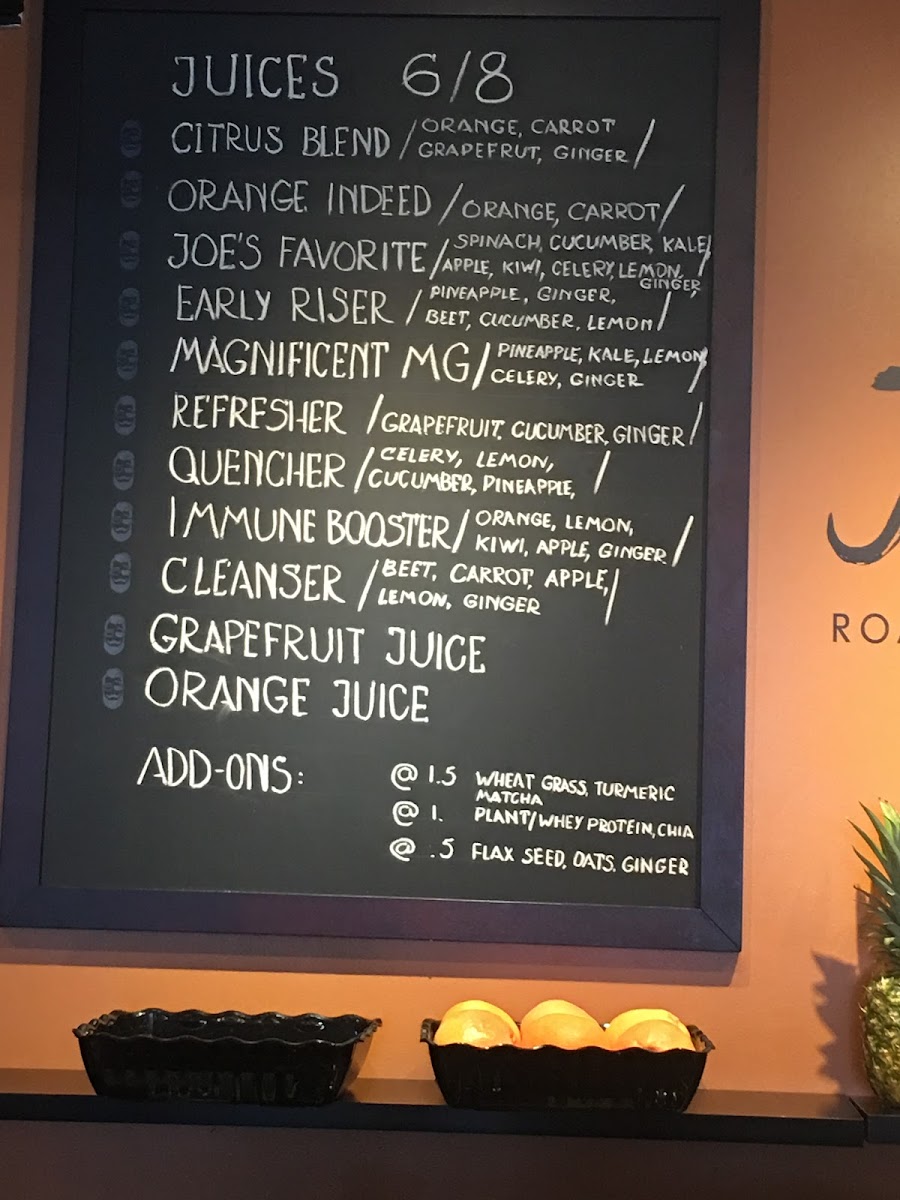 JUICES 6/8
CITRUS BLEND / ORANGE, CARROT
GRAPEFRUT, GINGER /
ORANGE INDEED / ORANGE, CARROT /
JOE'S FAVORITE / SPINACH, CUCUMBER, KALE /
APPLE, KIWI, CELERY, LEMON,
GINGER
EARLY RISER / PINEAPPLE, GINGER,
BEET, CUCUMBER, LEMON /
MAGNIFICENT MG / PINEAPPLE, KALE, LEMON,
CELERY, GINGER /
REFRESHER / GRAPEFRUIT, CUCUMBER, GINGER /
QUENCHER / CELERY, LEMON,
CUCUMBER, PINEAPPLE, /
IMMUNE BOOSTER / ORANGE, LEMON,
KIWI, APPLE, GINGER /
CLEANSER / BEET, CARROT, APPLE, /
LEMON, GINGER
GRAPEFRUIT JUICE
ORANGE JUICE
ADD-ONS: @ 1.5 WHEAT GRASS, TURMERIC
MATCHA
@ 1. PLANT/WHEY PROTEIN, CHIA
@ .5 FLAX SEED, OATS. GINGER
J
ROA